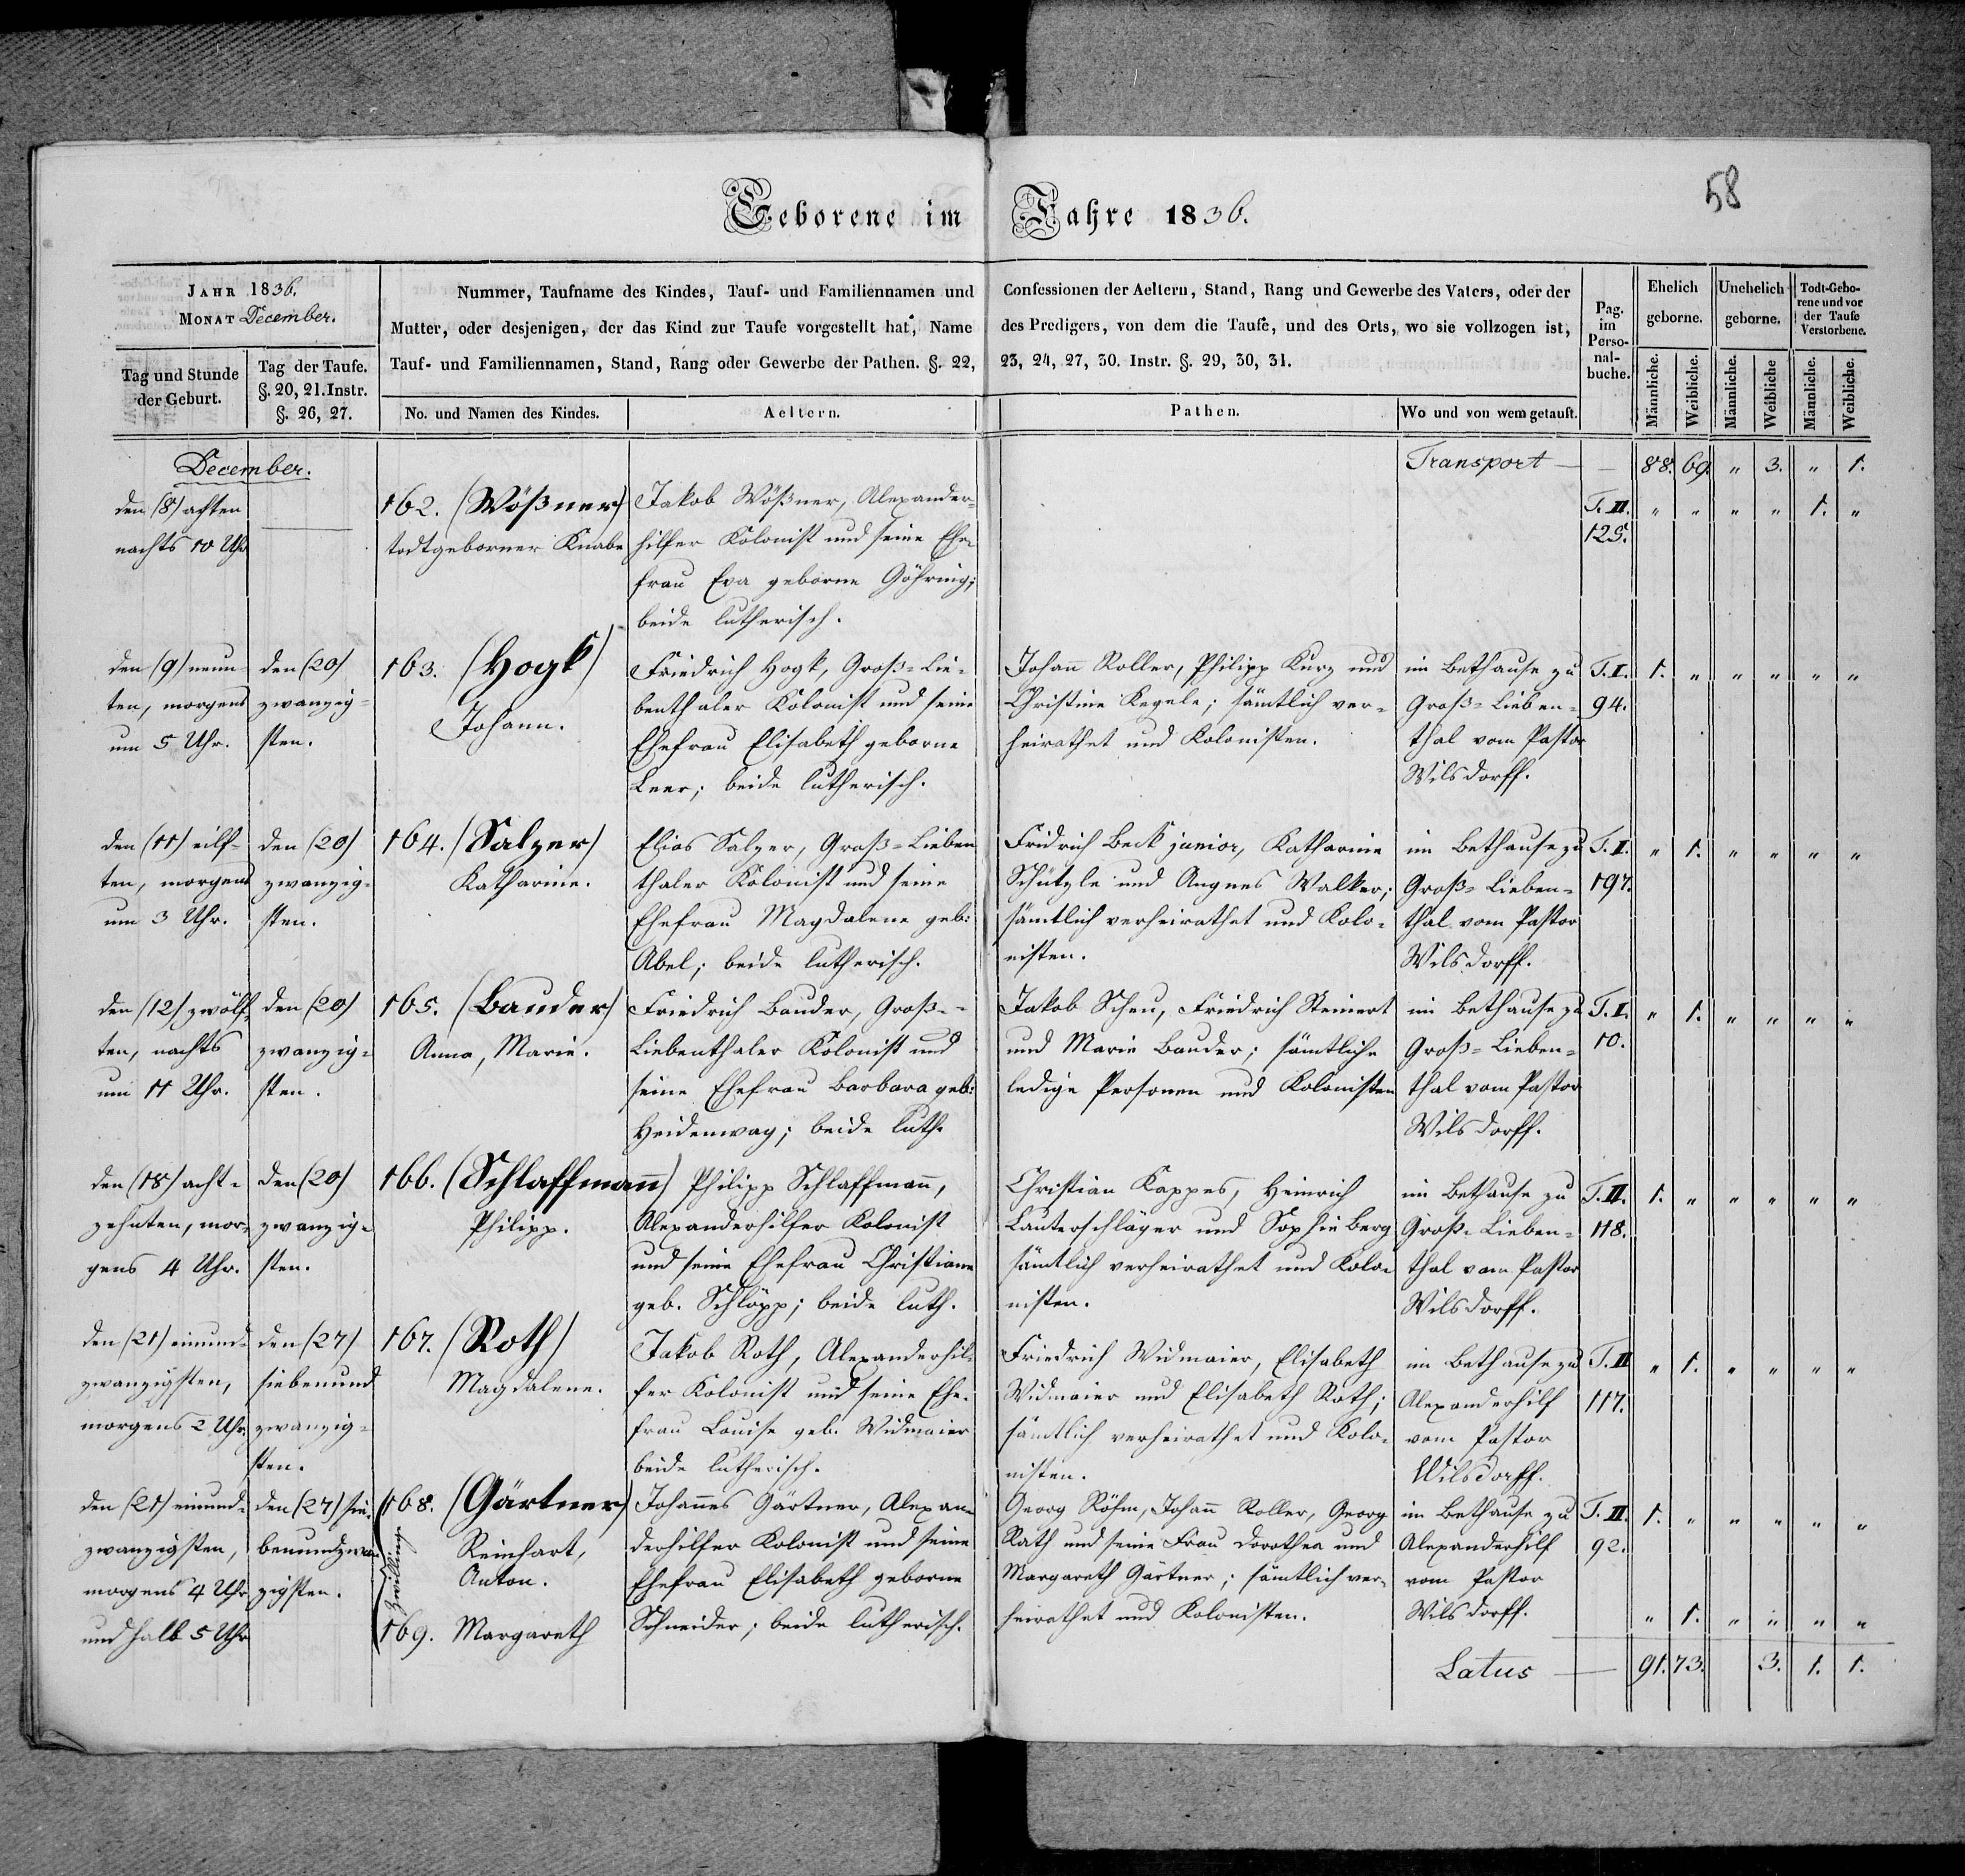 58
Geborene im Jahre 1836.
JAHR 1836.
MONAT December.
Tag und Stunde
der Geburt.
Tag der Taufe.
§. 20, 21. Instr.
§. 26, 27.
Nummer, Taufname des Kindes, Tauf- und Familiennamen und
Mutter, oder desjenigen, der das Kind zur Taufe vorgestellt hat, Name
Tauf- und Familiennamen, Stand, Rang oder Gewerbe der Pathen. §. 22,
No. und Namen des Kindes.
Aeltern.
Confessionen der Aeltern, Stand, Rang und Gewerbe des Vaters, oder der
des Predigers, von dem die Taufe, und des Orts, wo sie vollzogen ist,
23, 24, 27, 30. Instr. §. 29, 30, 31.
Pathen.
Wo und von wem getauft.
Pag.
im
Perso-
nal-
buche.
Ehelich
geborne.
Unehelich
geborne.
Todt-Gebo-
rene und vor
der Taufe
Verstorbene.
Männliche.
Weibliche.
Männliche.
Weibliche
Männliche.
Weibliche.
December.
Transport — — 88. 69 " 3. " 1.
den (8) achten
nachts 10 Uhr
162. (Wößner)
todtgeborner Knabe
Jakob Wößner, Alexander-
hilfer Kolonist und seine Ehe-
frau Eva geborne Göhring;
beide lutherisch.
T. II.
125.
" " " " 1. "
den (9) neun-
ten, morgens
um 5 Uhr.
den (20)
zwanzig-
sten.
163. (Hogk)
Johann.
Friedrich Hogk, Groß-Lie-
benthaler Kolonist und seine
Ehefrau Elisabeth geborne
Leer; beide lutherisch.
Johann Roller, Philipp Kurz und
Christine Kegele; sämtlich ver-
heirathet und Kolonisten.
im Bethause zu
Groß-Lieben-
thal vom Pastor
Wilsdorff.
T. I.
94.
1. " " " " "
den (11) eilf-
ten, morgens
um 3 Uhr.
den (20)
zwanzig-
sten.
164. (Salzer)
Katharine.
Elias Salzer, Groß-Lieben
thaler Kolonist und seine
Ehefrau Magdalene geb:
Abel; beide lutherisch.
Fridrich Beck junior, Katharine
Schützle und Angnes Walker;
sämtlich verheirathet und Kolo-
nisten.
im Bethause zu
Groß-Lieben-
thal vom Pastor
Wilsdorff.
T. I.
197.
" 1. " " " "
den (12) zwölf-
ten, nachts
um 11 Uhr.
den (20)
zwanzig-
sten.
165. (Bauder)
Anna, Marie.
Friedrich Bauder, Groß-
Liebenthaler Kolonist und
seine Ehefrau Barbara geb:
Heidenwag; beide luth.
Jakob Scheu, Friedrich Steinert
und Marie Bauder; sämtliche
ledige Personen und Kolonisten
im Bethause zu
Groß-Lieben-
thal vom Pastor
Wilsdorff.
T. I.
10.
" 1. " " " "
den (18) acht-
zehnten, mor-
gens 4 Uhr.
den (20)
zwanzig-
sten.
166. (Schlaffmann)
Philipp.
Philipp Schlaffmann,
Alexanderhilfer Kolonist
und seine Ehefrau Christiane
geb. Schlöpp; beide luth.
Christian Kappes, Heinrich
Lauterschläger und Sophie Berg
sämtlich verheirathet und Kolo-
nisten.
im Bethause zu
Groß-Lieben-
thal vom Pastor
Wilsdorff.
T. II.
118.
1. " " " " "
den (21) einund-
zwanzigsten,
morgens 2 Uhr.
den (27)
siebenund
zwanzig-
sten.
167. (Roth)
Magdalene.
Jakob Roth, Alexanderhil-
fer Kolonist und seine Ehe-
frau Louise geb. Widmaier
beide lutherisch.
Friedrich Widmaier, Elisabeth
Widmaier und Elisabeth Roth;
sämtlich verheirathet und Kolo-
nisten.
im Bethause zu
Alexanderhilf
vom Pastor
Wilsdorff.
T. II
117.
" 1. " " " "
den (21) einund-
zwanzigsten,
morgens 4 Uhr
und halb 5 Uhr
den (27) sie-
benundzwan-
zigsten.
Zwillinge
168. (Gärtner)
Reinhart,
Anton.
169. Margareth
Johannes Gärtner, Alexan-
derhilfer Kolonist und seine
Ehefrau Elisabeth geborne
Schneider; beide lutherisch.
Georg Röhm, Johann Roller, Georg
Rath und seine Frau Dorothea und
Margareth Gärtner; sämtlich ver-
heirathet und Kolonisten.
im Bethause zu
Alexanderhilf
vom Pastor
Wilsdorff.
T. II.
92.
1. " " " " "
" 1. " " " "
Latus — 91. 73. 3. 1. 1.